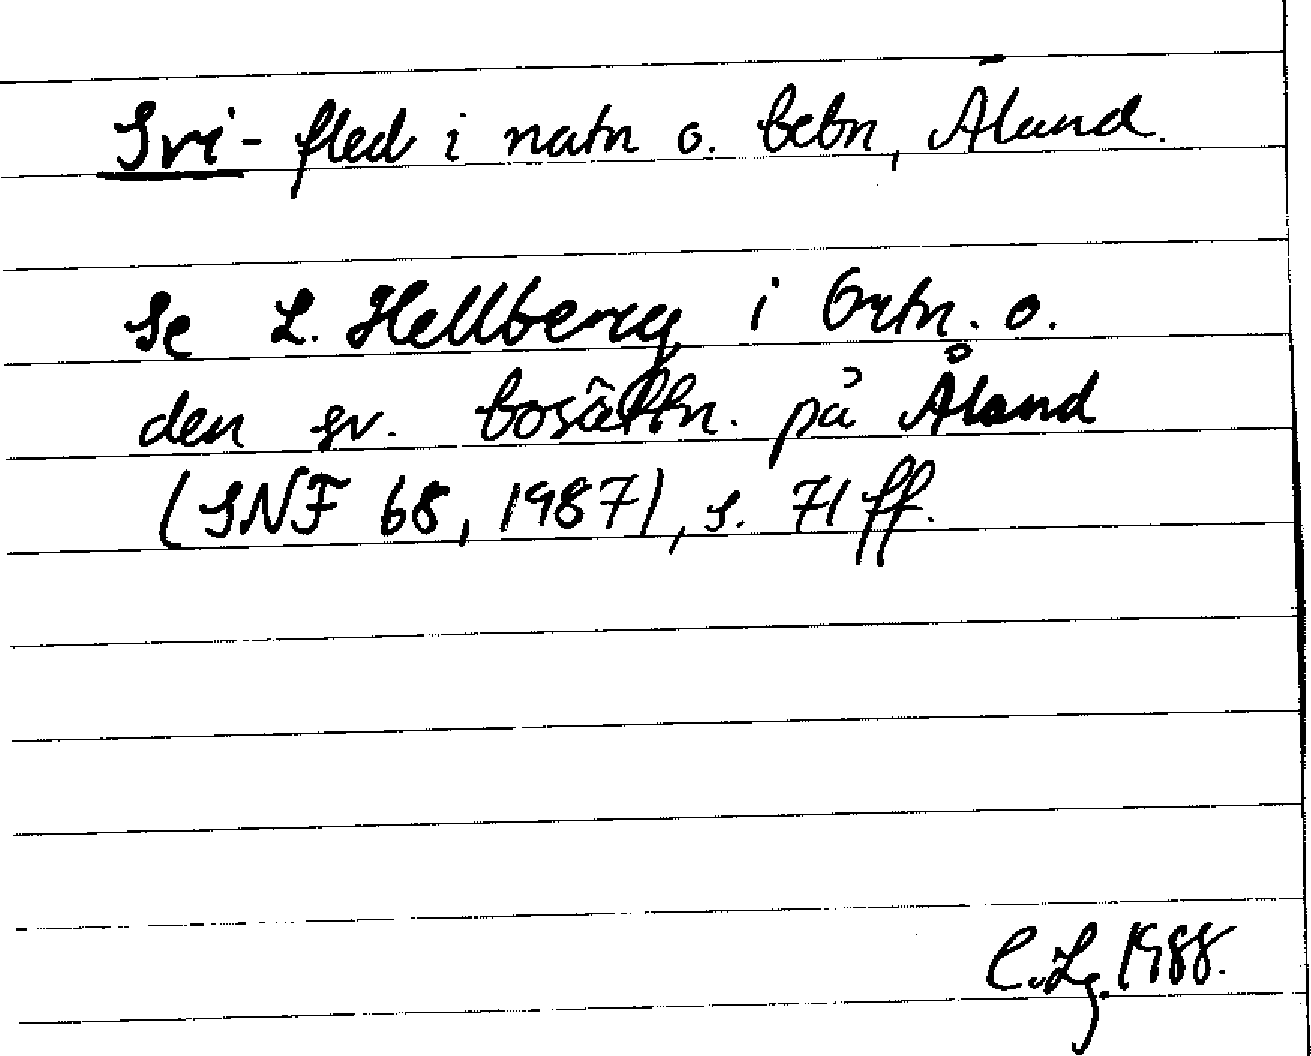 Svi- fled i natn o. bebn, Åland.
Se L. Hellberg i Ortn. o.
den sv. bosättn. på Åland
(SNF 68, 1987), s. 71 ff.
C. Lg. 1988.